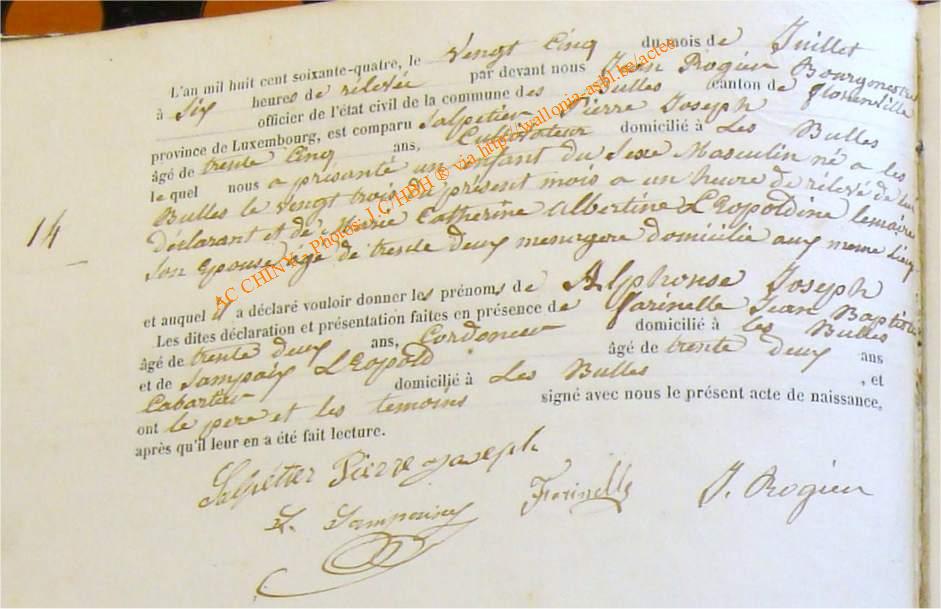 L'an mil huit cent soixante-quatre, le vengt Cinq du mois de Juillet
à Six heures de rélevée par devant nous Jean Rogier Bourgmestre
officier de l'état civil de la commune des Bulles canton de florenville
province de Luxembourg, est comparu Salpetier Pierre Joseph
âgé de trente Cinq ans, Cultivateur domicilié à Les Bulles
le quel nous a présanté un enfant du Sexe Masculin né a les
Bulles le vengt trois du présent mois a un heure de rélevé de lui
Déclarant et de Marie Catherine Albertine LEopoldine lemaire
Son Epouse, âgé de trente deux menagere domicilié aux meme Lieux
14
et auquel il a déclaré vouloir donner les prénoms de Alphonse Joseph
Les dites déclaration et présentation faites en présence de Farinelle Jean Baptiste
âgé de trente deux ans, Cordonier domicilié à les Bulles
et de Sampaix LEopold âgé de trente deux ans
Cabartier domicilié à Les Bulles , et
ont le pere et les temoins signé avec nous le présent acte de naissance,
après qu'il leur en a été fait lecture.
Salpétier Pierre joseph
L. Sampaix Farinelle J. Rogier
AC CHINY - Photos: J.C/HBH ® via http://wallonia-asbl.be/actes